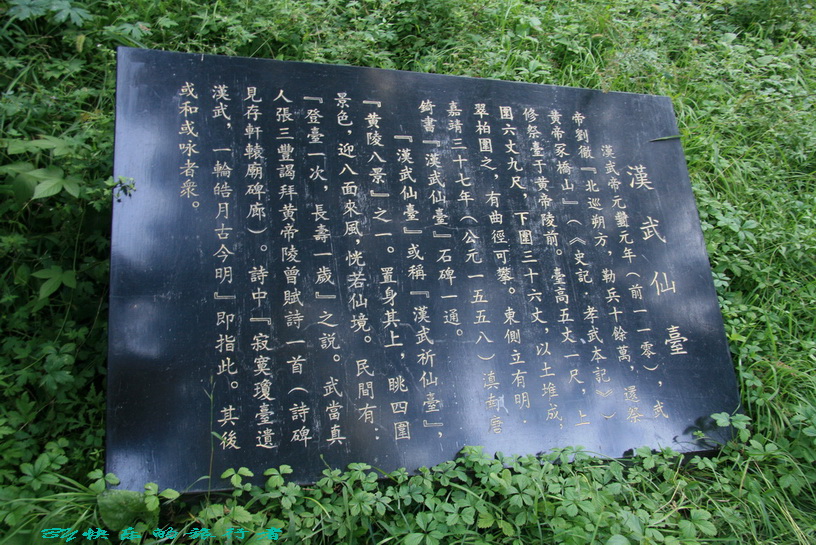 漢武仙臺
漢武帝元豐元年（前一一零），武
帝劉徹『北巡朔方，勒兵十餘萬，還祭
黃帝冢橋山』（《史記 孝武本記》）
修祭臺于黃帝陵前。臺高五丈一尺，上
圍六丈九尺，下圍三十六丈，以土堆成，
翠柏圍之，有曲徑可攀。東側立有明·
嘉靖三十七年（公元一五五八）滇南唐
錡書『漢武仙臺』石碑一通。
『漢武仙臺』或稱『漢武祈仙臺』，
『黃陵八景』之一。置身其上，眺四圍
景色，迎八面來風，恍若仙境。民間有：
『登臺一次，長壽一歲』之説。武當真
人張三豐謁拜黃帝陵曾賦詩一首（詩碑
見存軒轅廟碑廊）。詩中『寂寞瓊臺遺
漢武，一輪皓月古今明』即指此。其後
或和或咏者衆。
BY快乐的旅行者